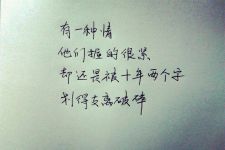 有一种情
他们握的很紧
却还是被十年两个字
划得支离破碎